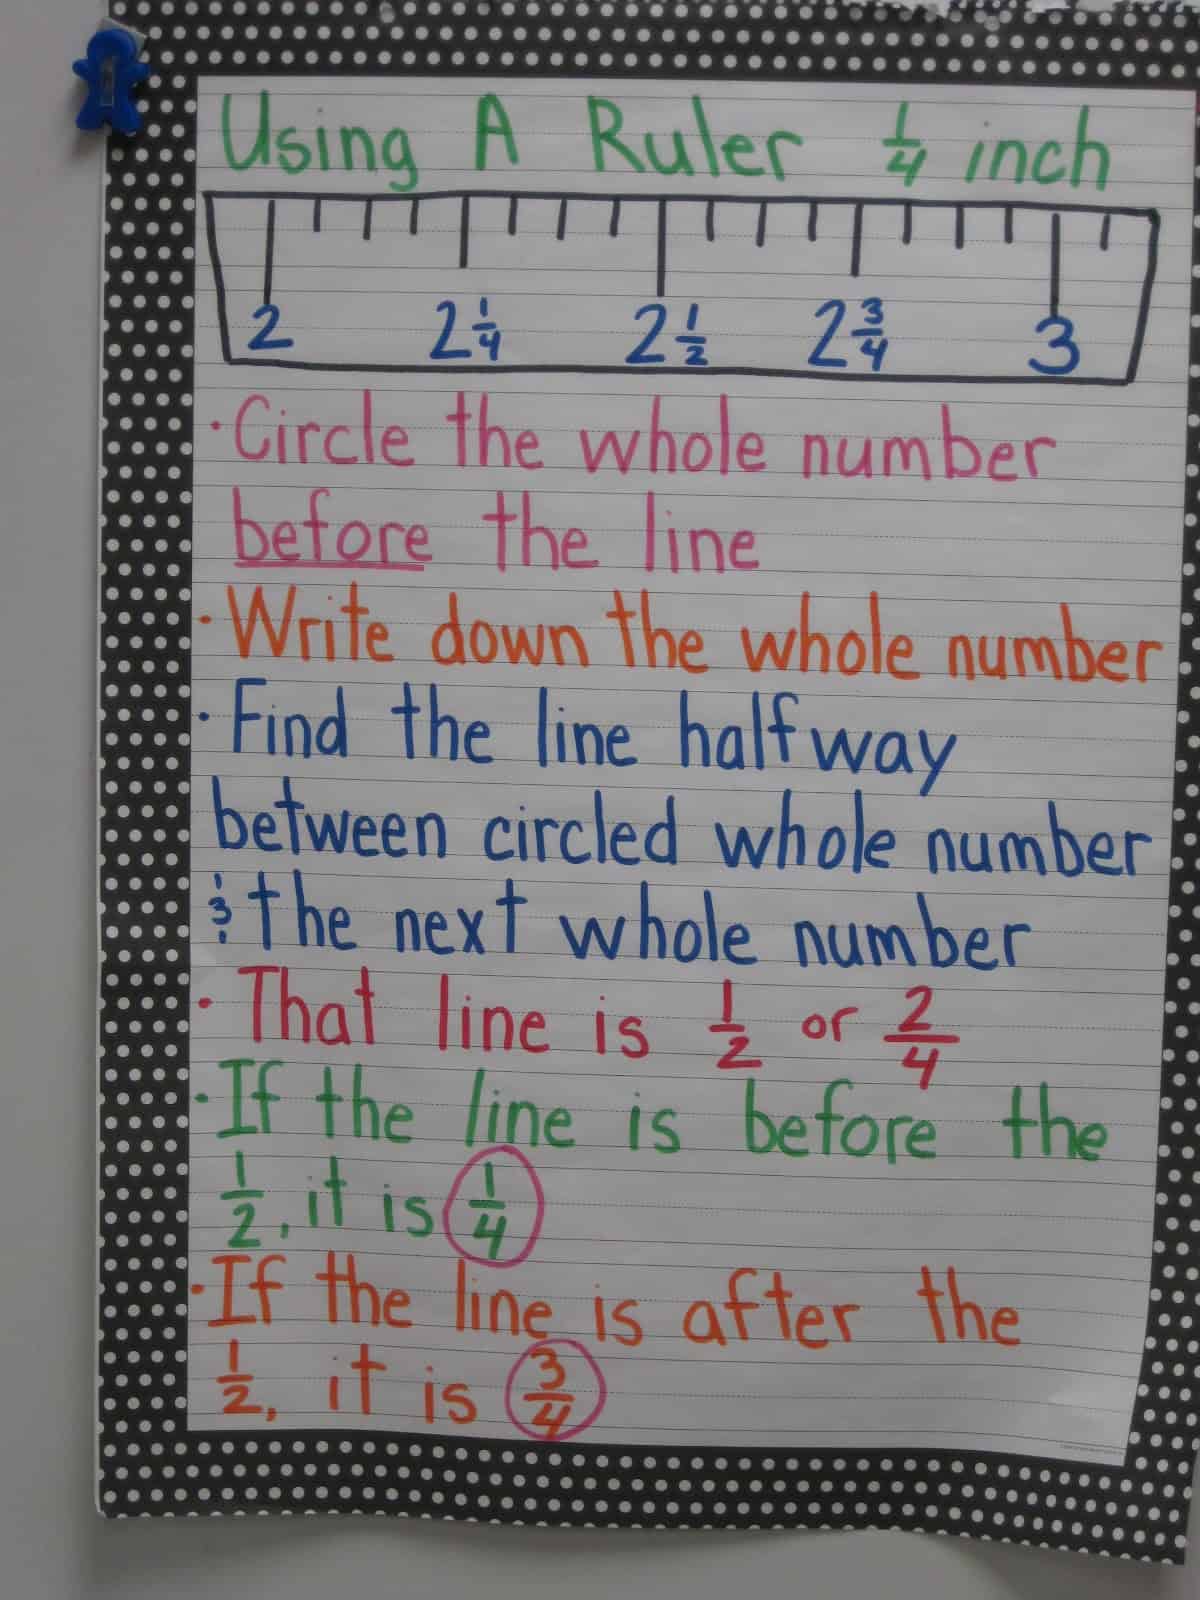 Using A Ruler 1/4 inch
2 2 1/4 2 1/2 2 3/4 3
· Circle the whole number
before the line
· Write down the whole number
· Find the line halfway
between circled whole number
& the next whole number
· That line is 1/2 or 2/4
· If the line is before the
1/2, it is 1/4
· If the line is after the
1/2, it is 3/4